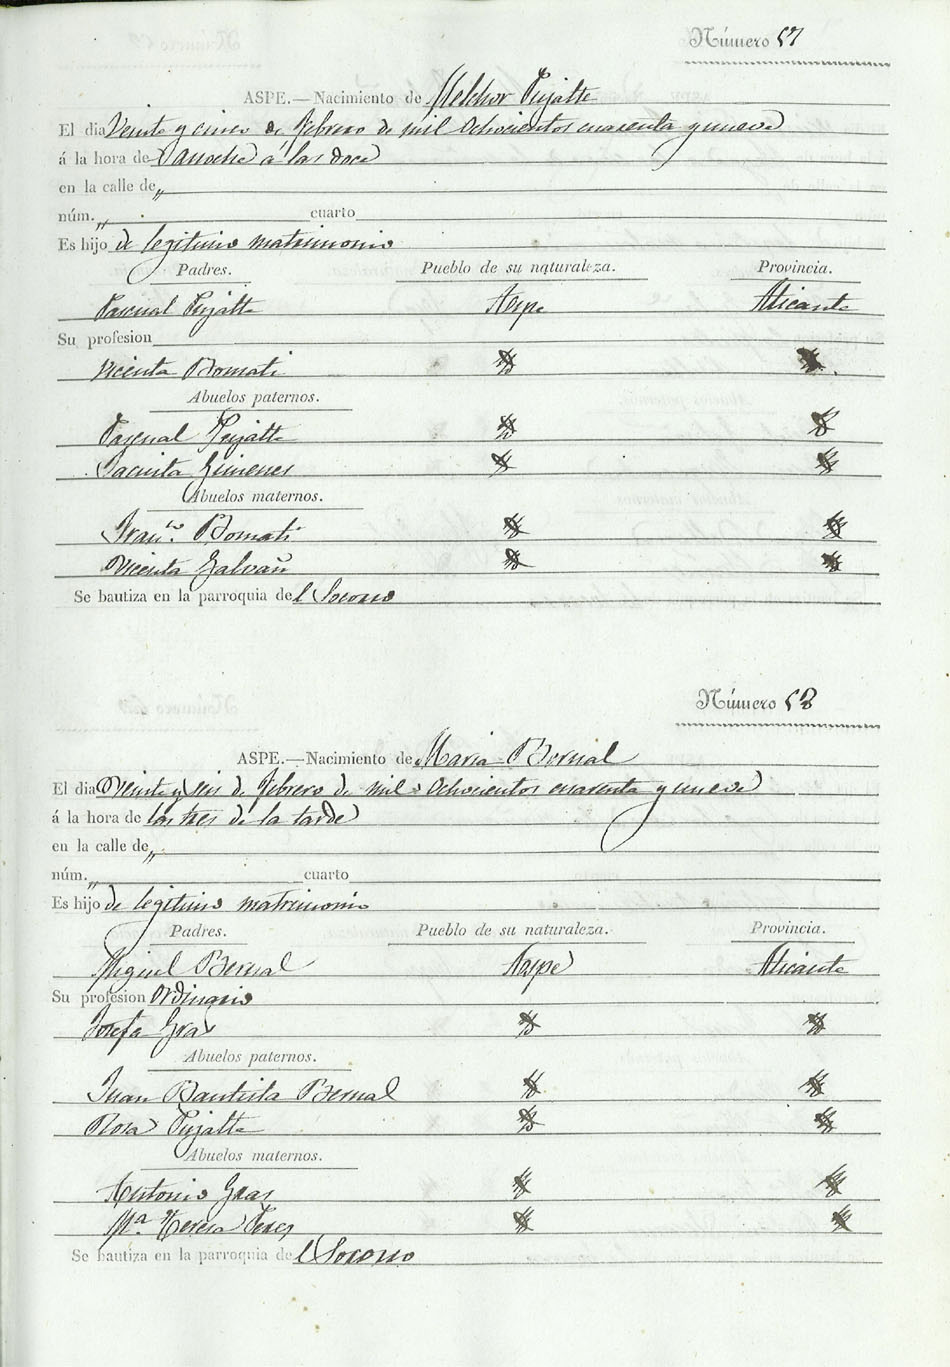 Número 57
ASPE.—Nacimiento de Melchor Pujalte
El dia Veinte y cinco de febrero de mil ochocientos cuarenta y nueve
á la hora de anoche á las doce
en la calle de „
núm. „ cuarto
Es hijo de legitimo matrimonio
Padres. Pueblo de su naturaleza. Provincia.
Pascual Pujalte Aspe Alicante
Su profesion
Vicenta Bomati
Abuelos paternos.
Pascual Pujalte
Jacinta Gimenes
Abuelos maternos.
Fran.co Bomati
Vicenta Galvañ
Se bautiza en la parroquia del Socorro
Número 58
ASPE.—Nacimiento de Maria Bernal
El dia Veinte y seis de febrero de mil ochocientos cuarenta y nueve
á la hora de las tres de la tarde
en la calle de „
núm. „ cuarto
Es hijo de legitimo matrimonio
Padres. Pueblo de su naturaleza. Provincia.
Miguel Bernal Aspe Alicante
Su profesion Ordinario
Josefa Gras
Abuelos paternos.
Juan Bautista Bernal
Rosa Pujalte
Abuelos maternos.
Antonio Gras
Mª Teresa Peres
Se bautiza en la parroquia del Socorro